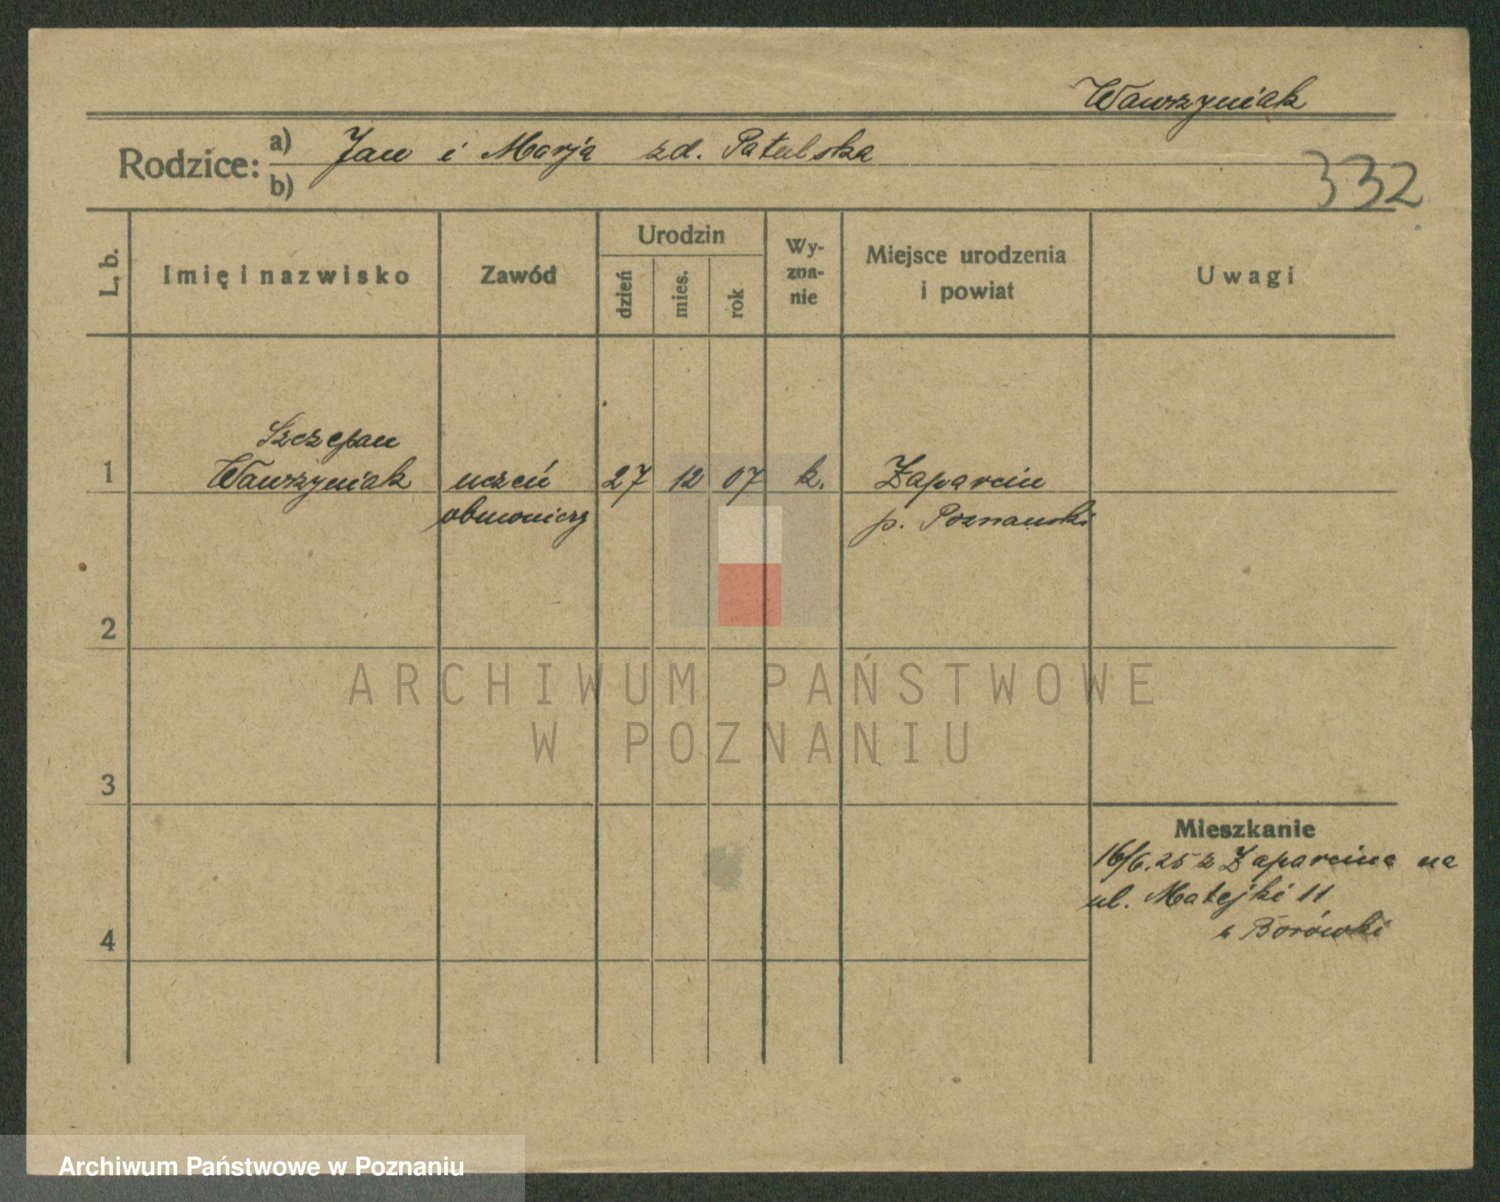 Wawrzyniak
Rodzice: a) Jan i Marja zd. Patulska
b)
332
L. b.
Imię i nazwisko
Zawód
Urodzin
dzień
mies.
rok
Wy-
zna-
nie
Miejsce urodzenia
i powiat
Uwagi
Szczepan
1 Wawrzyniak uczeń 27 12 07 k. Zaparcin
p. Poznański
2
ARCHIWUM PAŃSTWOWE
W POZNANIU
3
Mieszkanie
16/6.25 z Zaparcina na
ul. Matejki 11
u Borówki
4
Archiwum Państwowe w Poznaniu